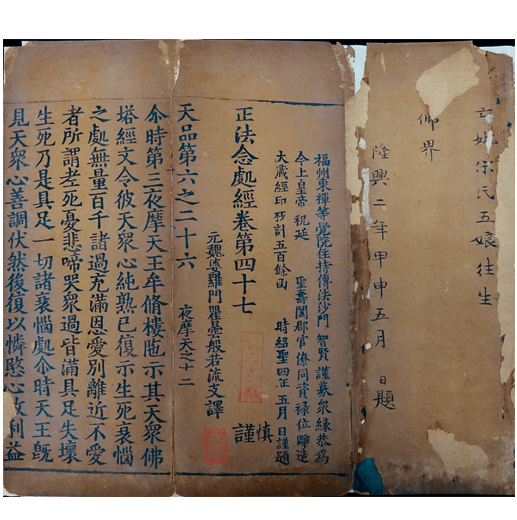 氏五娘往生
仙界
隆興二年甲申五月 日題
福州東禪等覺院住持傳法沙門 智賢 謹募衆緣恭為
今上皇帝祝延 聖壽闔郡官僚同資禄位雕造
大藏經印板計五百餘函 時紹聖四年五月 日謹題
正法念處經卷第四十七 慎
謹
元魏婆羅門瞿曇般若流支譯
天品第六之二十六 夜摩天之十二
尒時第三夜摩天王牟脩樓陁示其天衆佛
塔經文令彼天衆心純熟已復示生死衰惱
之處無量百千諸過充滿恩愛別離近不愛
者所謂老死憂悲啼哭衆過皆滿具足失壞
生死乃是具足一切諸衰惱處尒時天王旣
見天衆心善調伏然後復以憐愍心故利益